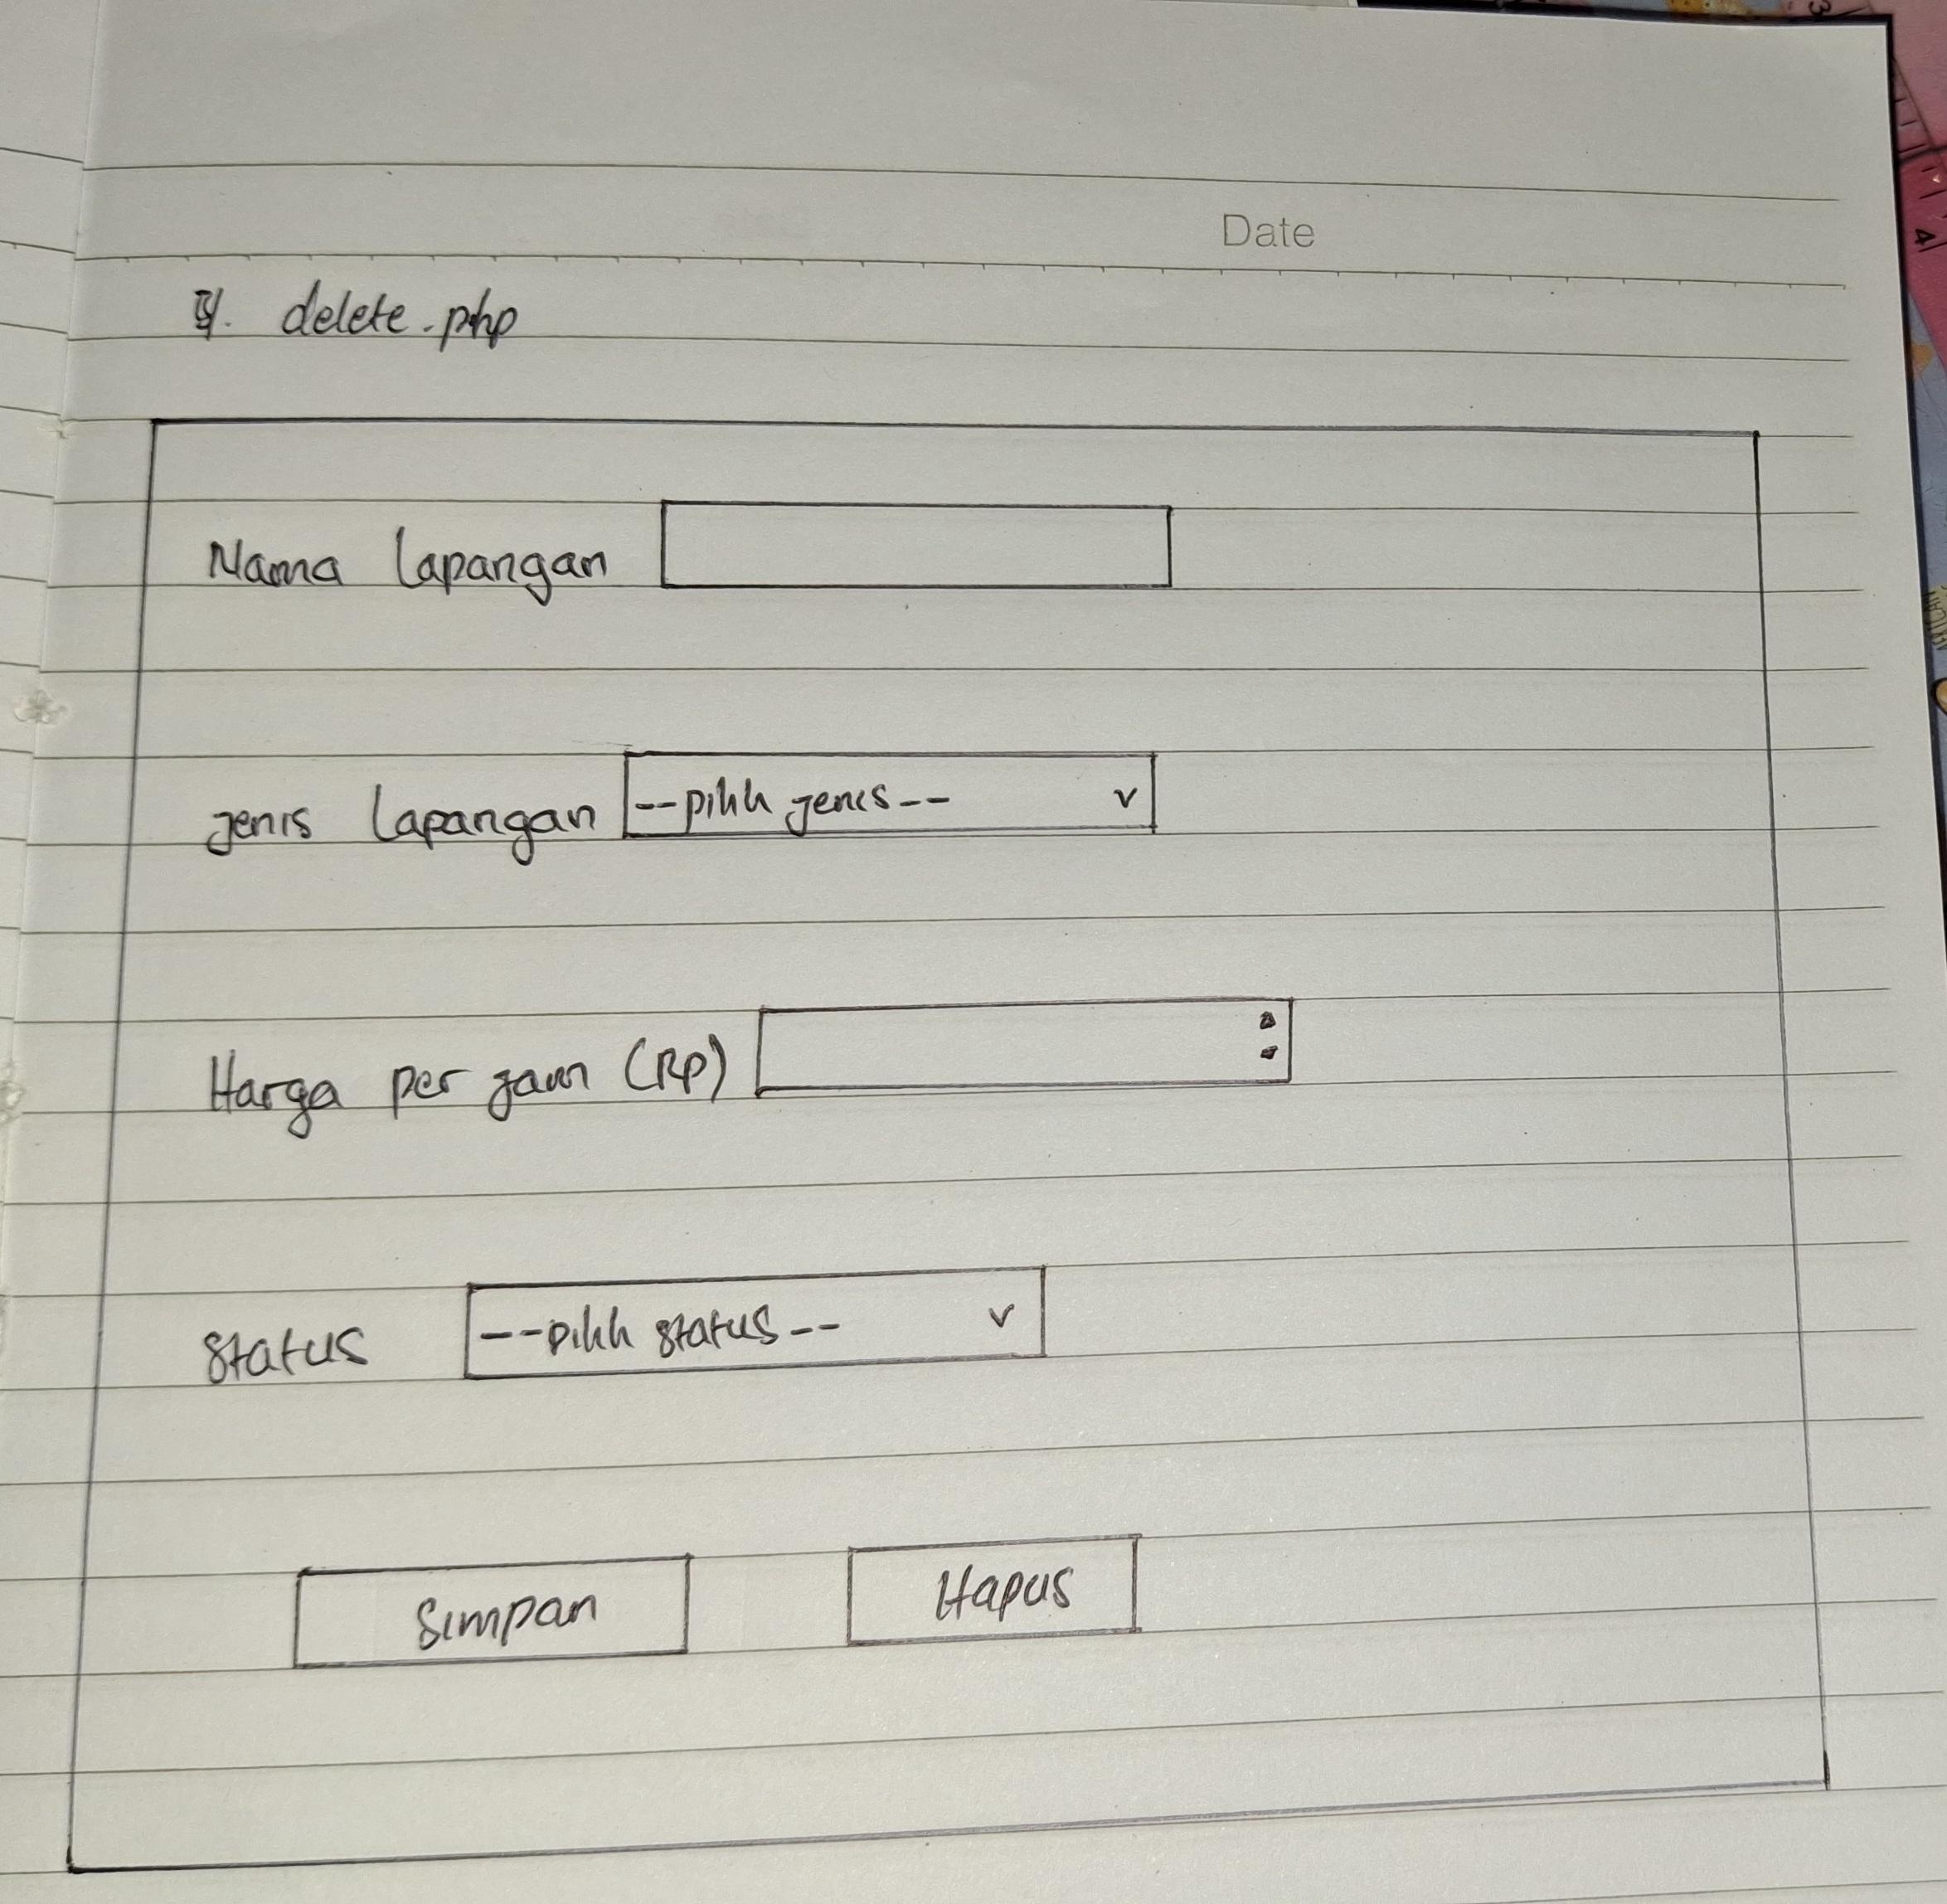 Date
4. delete.php
Nama Lapangan
jenis Lapangan --pilih jenis-- v
Harga per jam (Rp)
status --pilih status-- v
Simpan Hapus
3
4